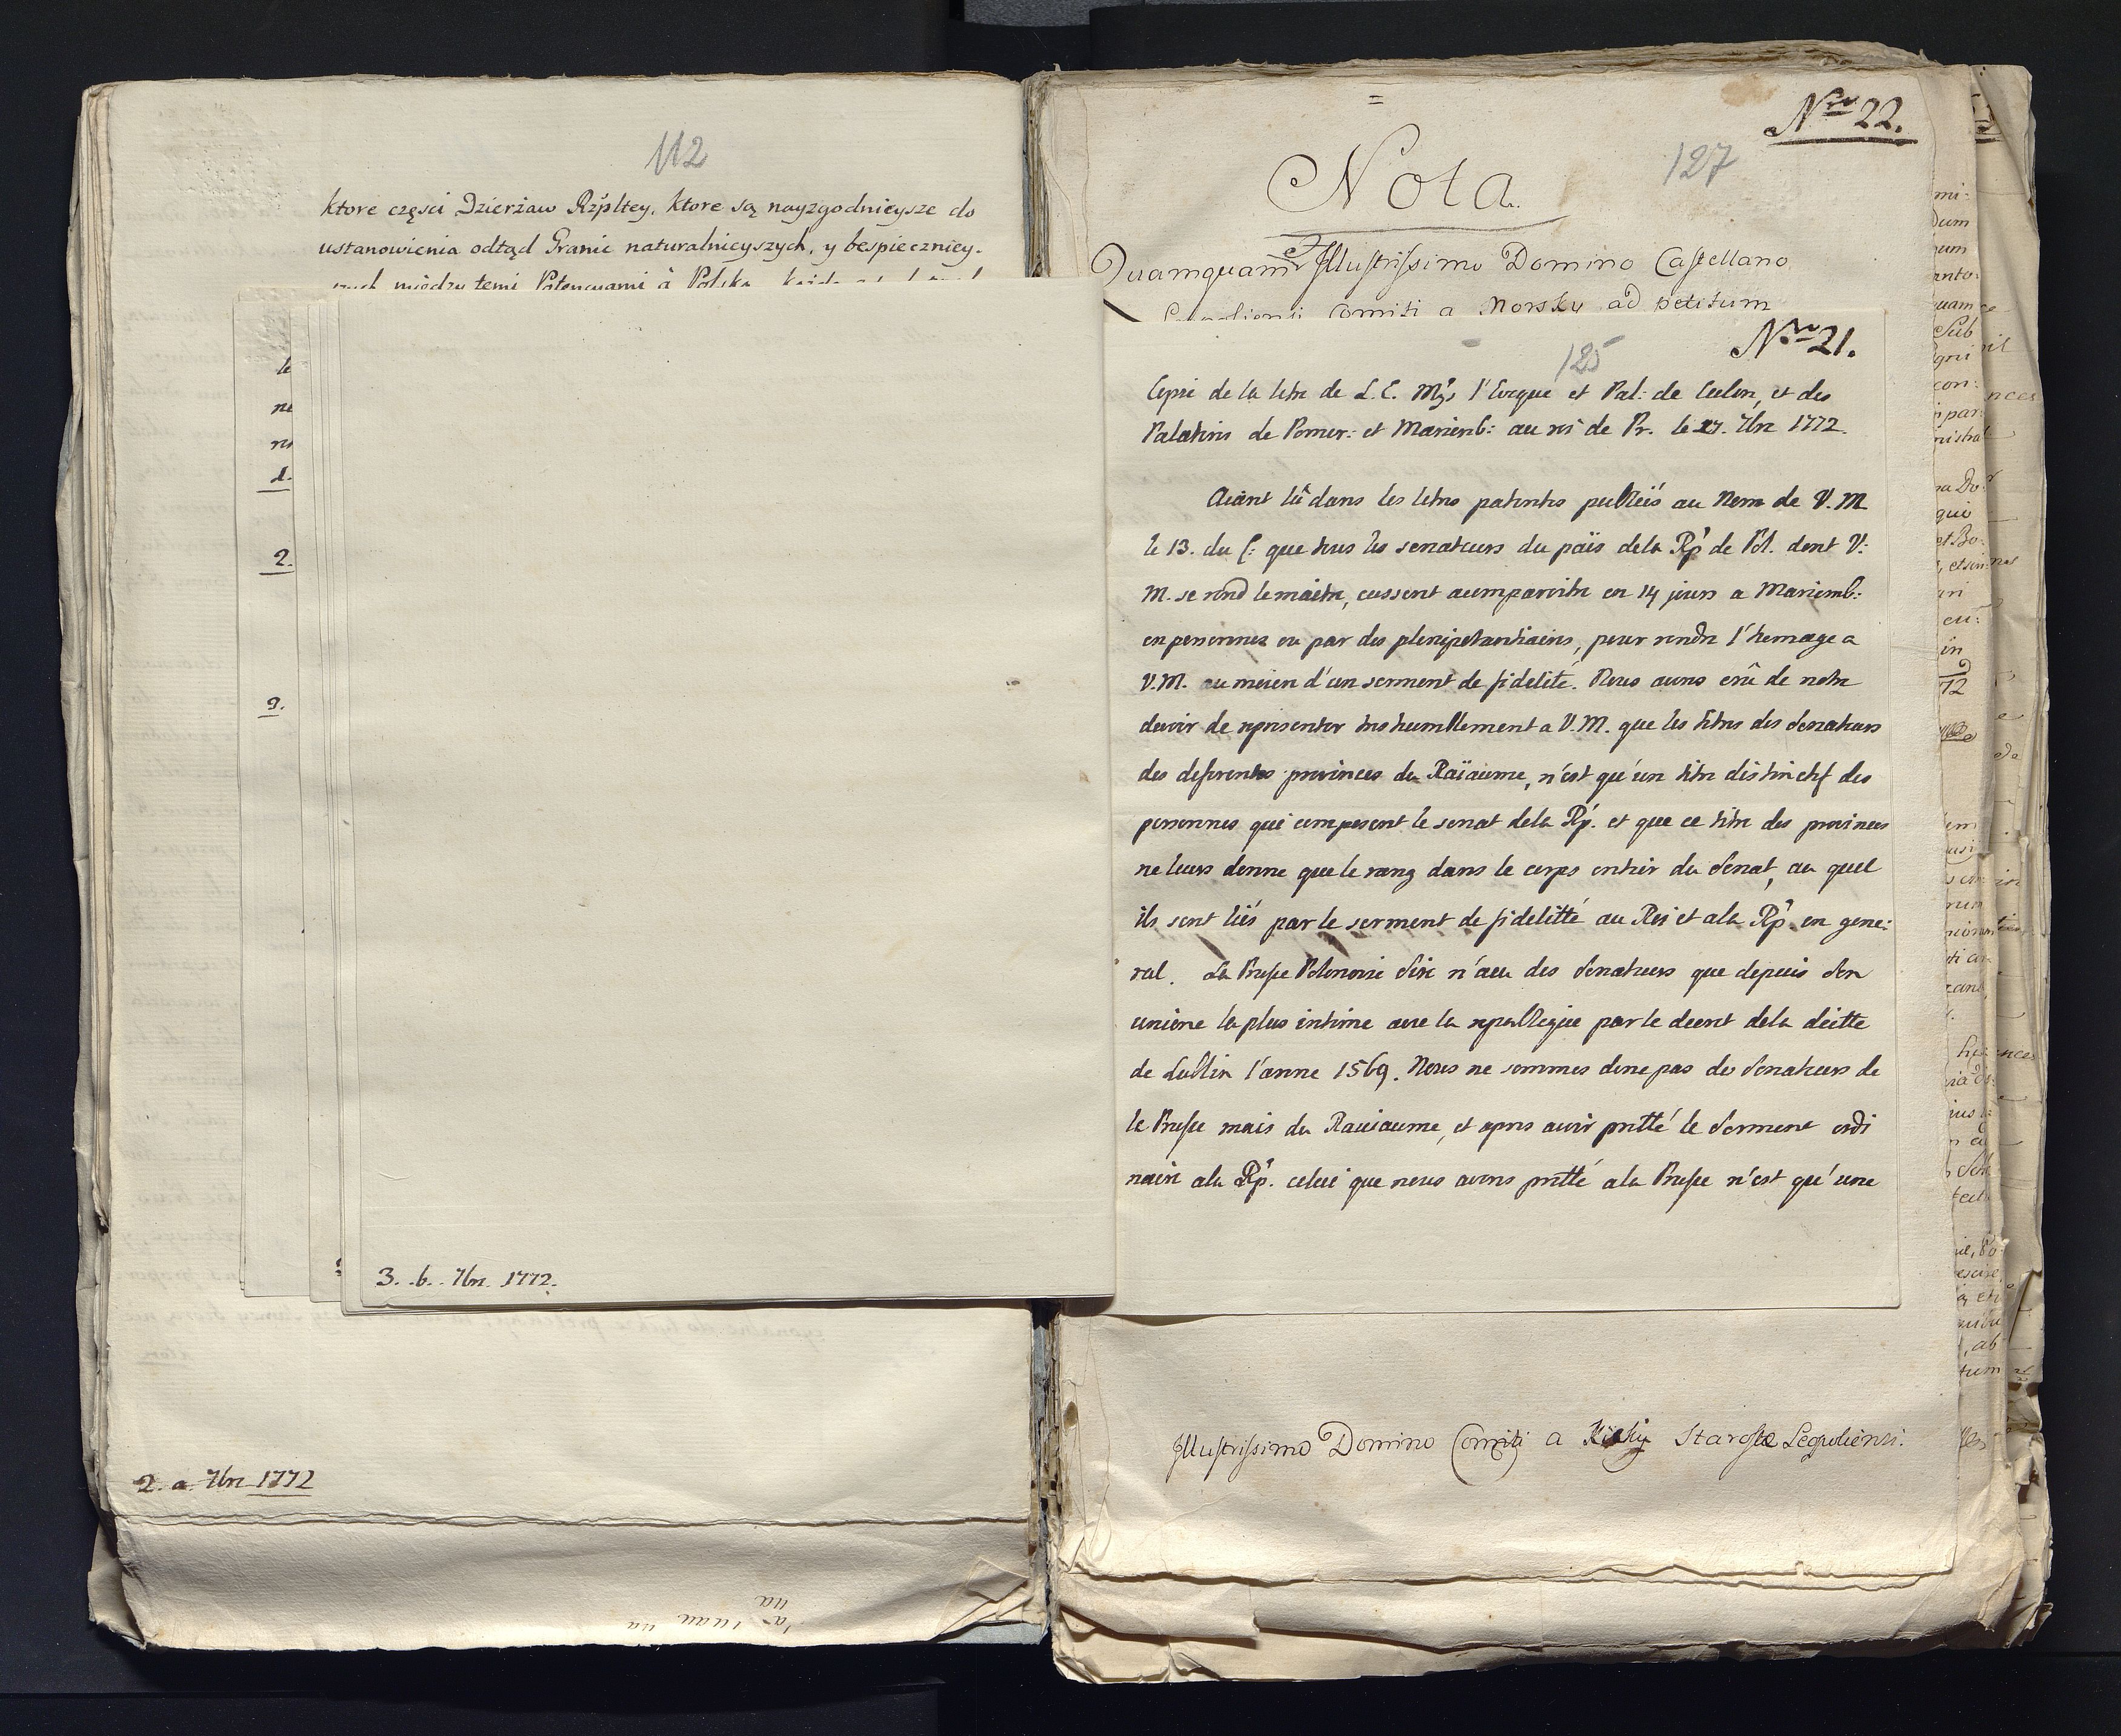 112
ktore częsci Dzierżaw Rzpltey, ktore są nayzgodnieysze do
ustanowienia odtąd Granic naturalnieyszych, y bespieczniey-
szych między temi Potencyami à Polską
le
1.
2.
3. b. 7bre 1772.
2. a. 7bre 1772
Nro 22.
127
Nota
Quamquam Illustrissimo Domino Castellano
Comiti a Morsky ad petitum
Nro 21.
125
Copie de la letre de L.E. Mgrs l'Eveque et Pal: de Culm, et des
Palatins de Pomer: et Marienb: au roi de Pr. le 27. 7bre 1772.
Aiant lû dans les letres patentes publieïs au Nom de V.M
le 13. du C: que tous les senateurs du païs dela Rp. de Pol. dont V:
M. se rend le maitre, eussent a comparoitre en 14 jours a Mariemb:
en personnes ou par des plenipotentiaires, pour rendre l'homage a
V.M. au moien d'un serment de fidelité. Nous avons crû de notre
devoir de representer tres humblement a V.M. que les titres des Senateurs
des deferentes provinces du Raïaume, n'est qu'un titre distinctif des
personnes qui composent le senat dela Rp. et que ce titre des provinces
ne leurs donne que le rang dans le corps entier du Senat, au quel
ils sont liés par le serment de fidelitté au Roi et ala Rp. en gene:
ral. La Prusse Polonoise Sire n'a eu des Senateurs que depuis Son
unione la plus intime avec la republique par le decret dela diette
de Lublin l'anne 1569. Nous ne sommes donc pas des Senateurs de
la Prusse mais du Rauiaume, et apres avoir pretté le Serment ordi
naire ala Rp. celui que nous avons pretté ala Prusse n'est qu'une
Illustrissimo Domino Comiti a Starosta Leopoliensi.